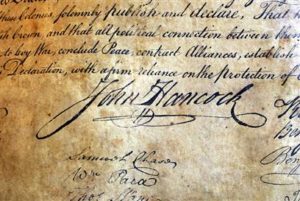 these Colonies, solemnly publish and declare, That
Crown, and that all political connection between them
levy War, conclude Peace, contract Alliances, establish
Declaration, with a firm reliance on the protection of
John Hancock
Samuel Chase
Wm Paca
Thos Stone